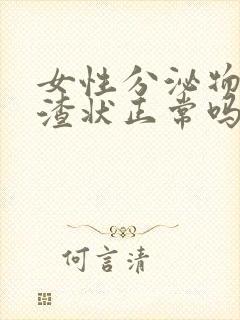 女性分泌物
渣状正常吗
何言清